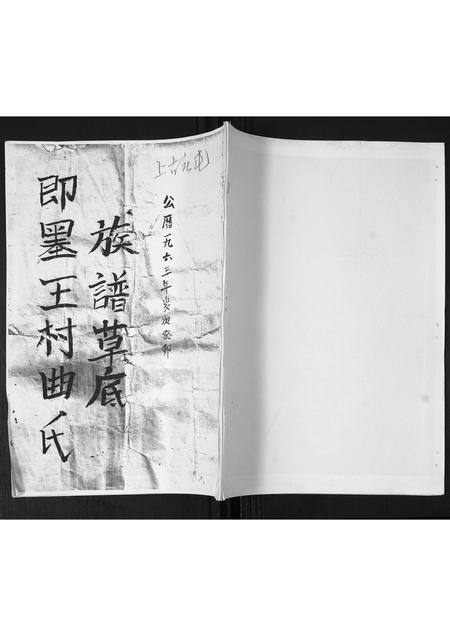 公曆一九六三年歲次癸卯
族譜草底
即墨王村曲氏